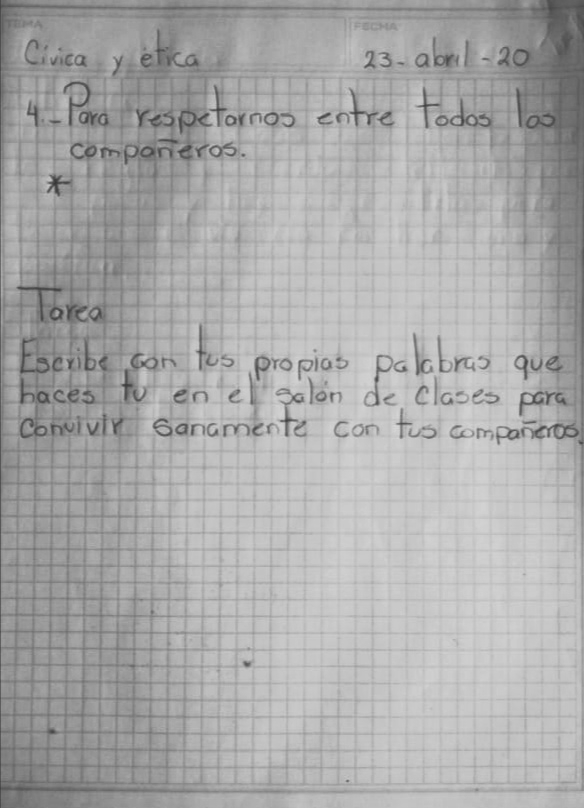 TEMA FECHA
Cívica y ética 23-abril-20
4.-Para respetarnos entre todos los
compañeros.
*
Tarea
Escribe con tus propias palabras que
haces tu en el salón de clases para
convivir sanamente con tus compañeros.